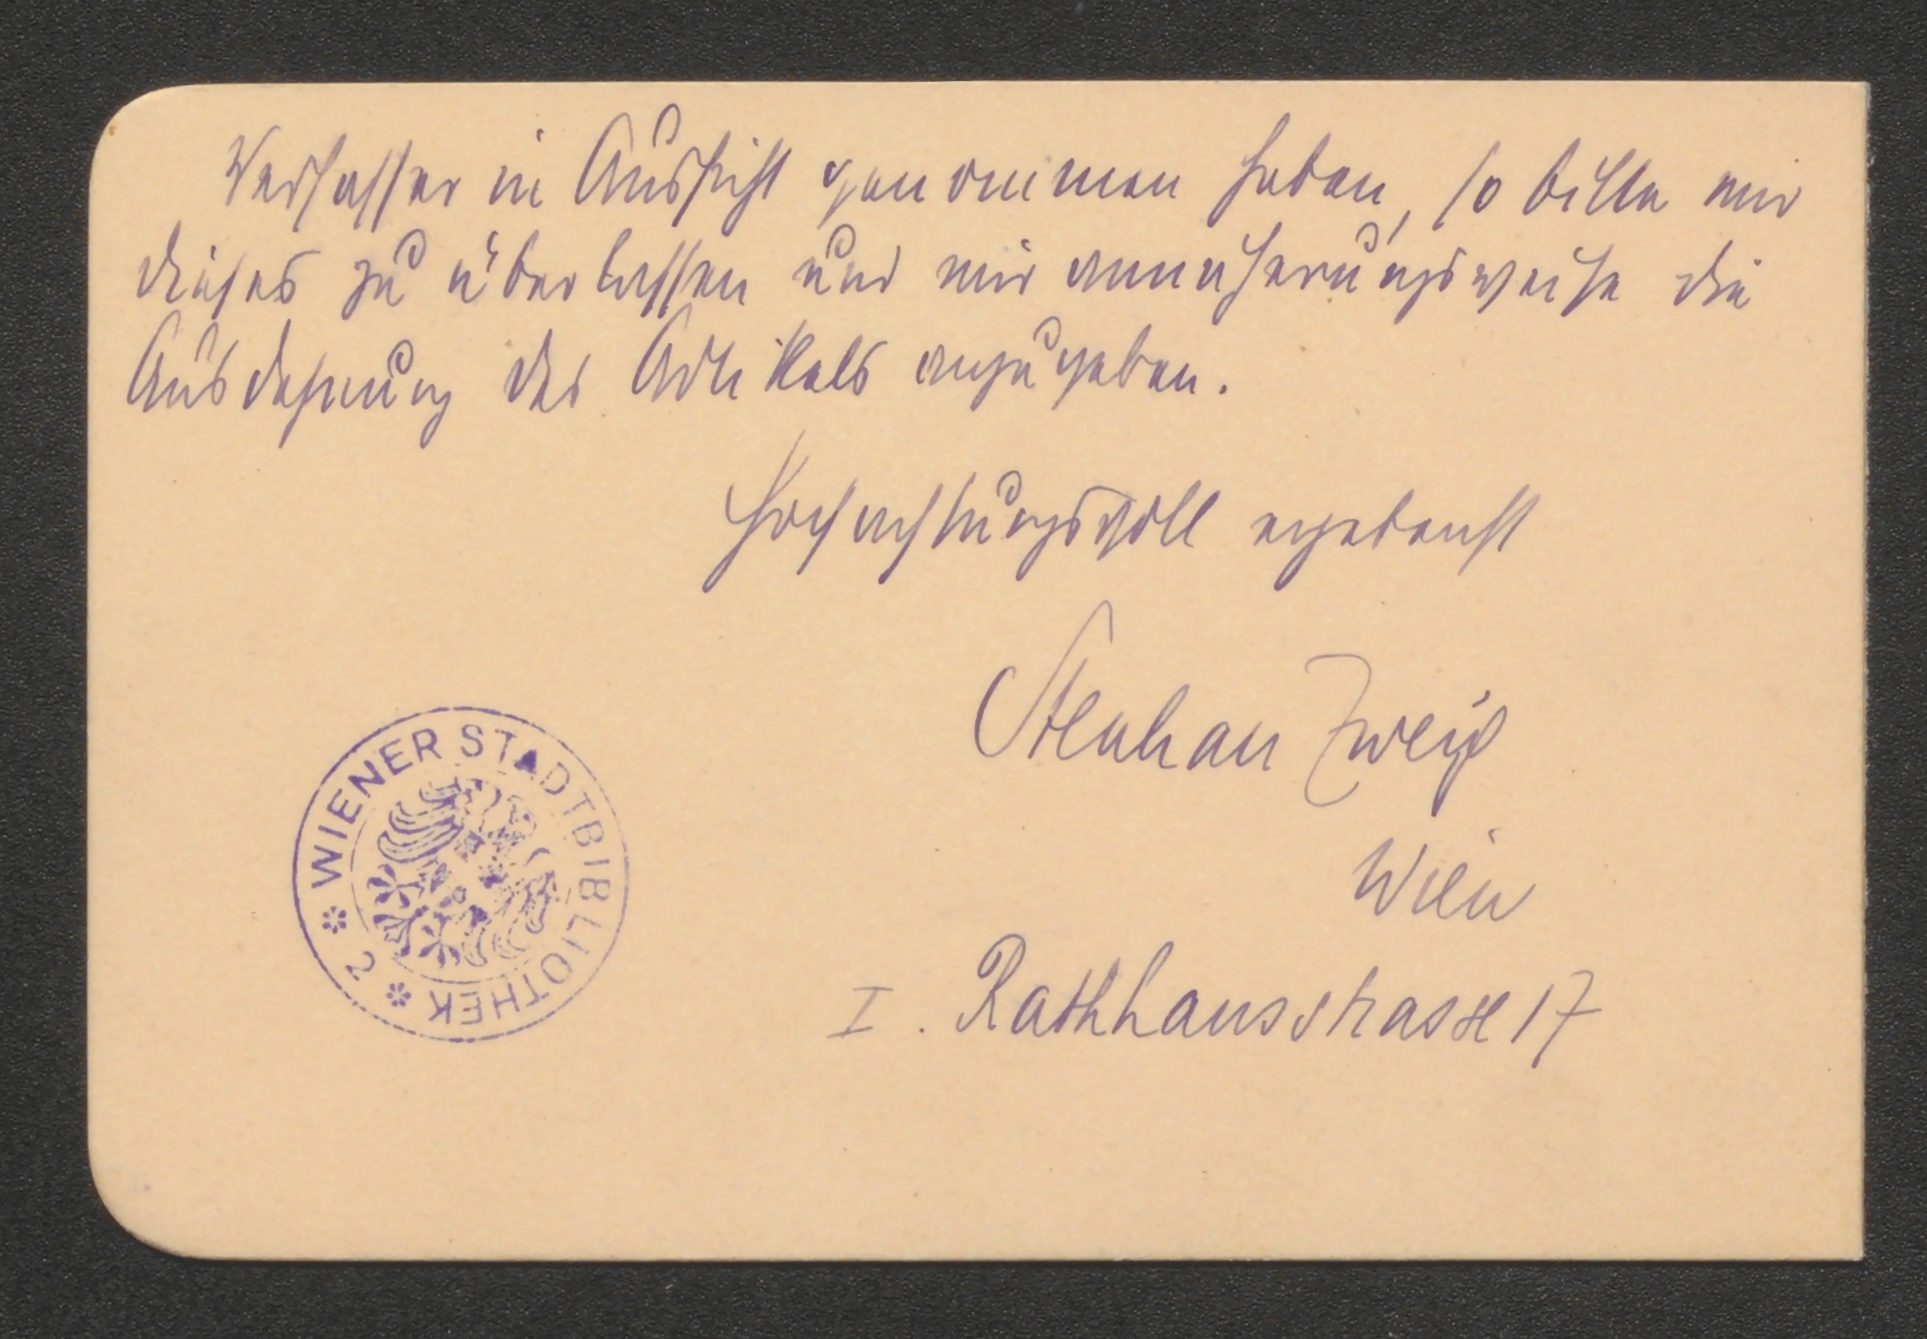 Verfasser in Aussicht genommen haben, so bitte mir
dieses zu überlassen und mir annäherungsweise die
Ausdehnung des Artikels anzugeben.
Hochachtungsvoll ergebenst
Stephan Zweig
Wien
I. Rathhausstrasse 17
WIENER STADTBIBLIOTHEK
2